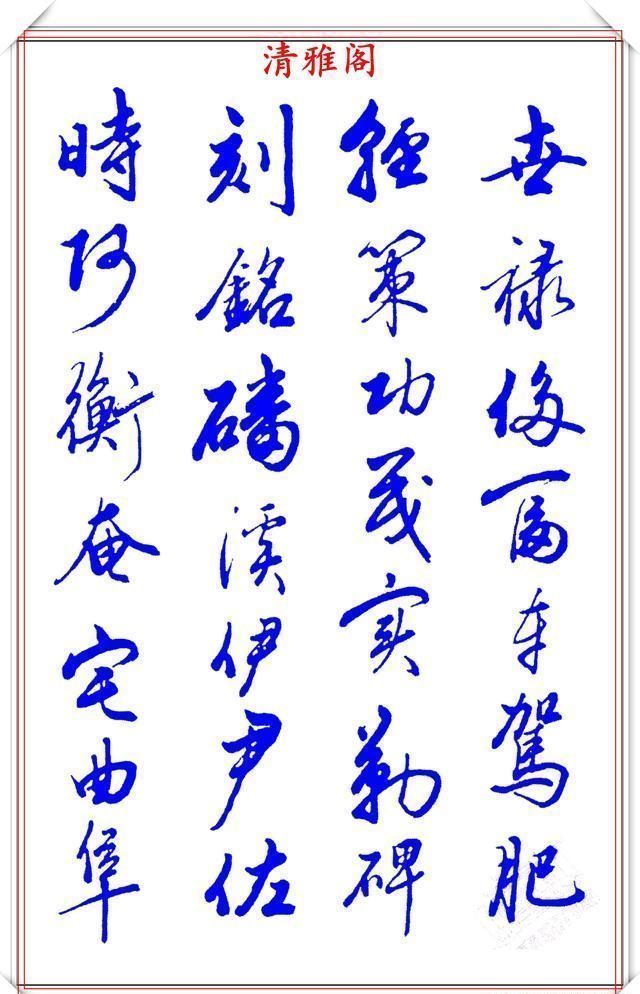 清雅阁
世禄侈富车驾肥
轻策功茂实勒碑
刻銘磻溪伊尹佐
時阿衡奄宅曲阜